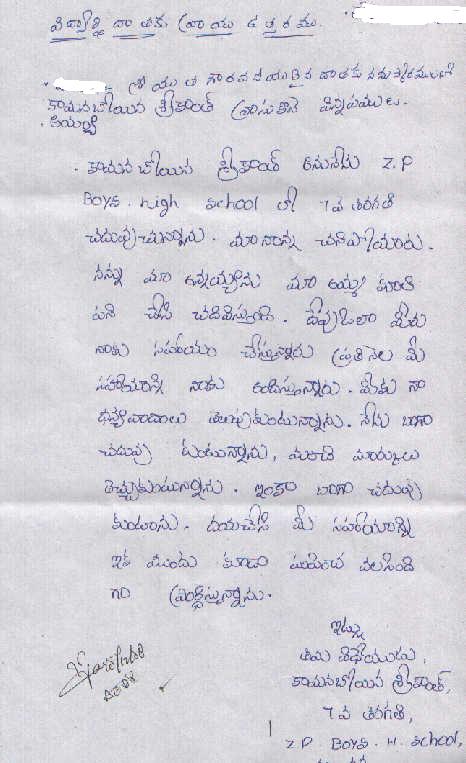 విద్యార్థి దాతకు వ్రాయు ఉత్తరము.
గౌరవనీయులైన దాతకు నమస్కారములతో
కామనబోయిన శ్రీకాంత్ వ్రాసుకొనే విన్నపములు.
కామనబోయిన శ్రీకాంత్ అనునేను Z.P
Boys. high school లో 7వ తరగతి
చదువుచున్నాను. మా నాన్న చనిపోయారు.
నన్ను మా అన్నయ్యను మా అమ్మ కూలి
పని చేసి చదివిస్తుంది. దేవుడిలా మీరు
నాకు సహాయం చేస్తున్నారు ప్రతినెల మీ
సహాయాన్ని నాకు అందిస్తున్నారు. మీకు నా
ధన్యవాదాలు తెలుపుకుంటున్నాను. నేను బాగా
చదువు కుంటున్నాను, మంచి మార్కులు
తెచ్చుకుంటున్నాను. ఇంకా బాగా చదువు
కుంటాను. దయచేసి మీ సహాయాన్ని
ఇక ముందు కూడా పంపించ వలసింది
గా ప్రార్థిస్తున్నాను.
ఇట్లు
తమ విధేయుడు,
కామనబోయిన శ్రీకాంత్,
7వ తరగతి,
Z.P. Boys. H. School,